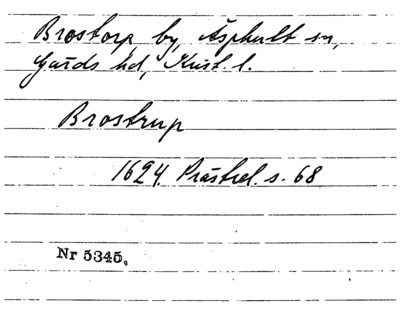 Brostorp by, Äsphult sn,
Gärds hd, Krist. l.
Brostrup
1624 Prästrel. s. 68
Nr 5345.